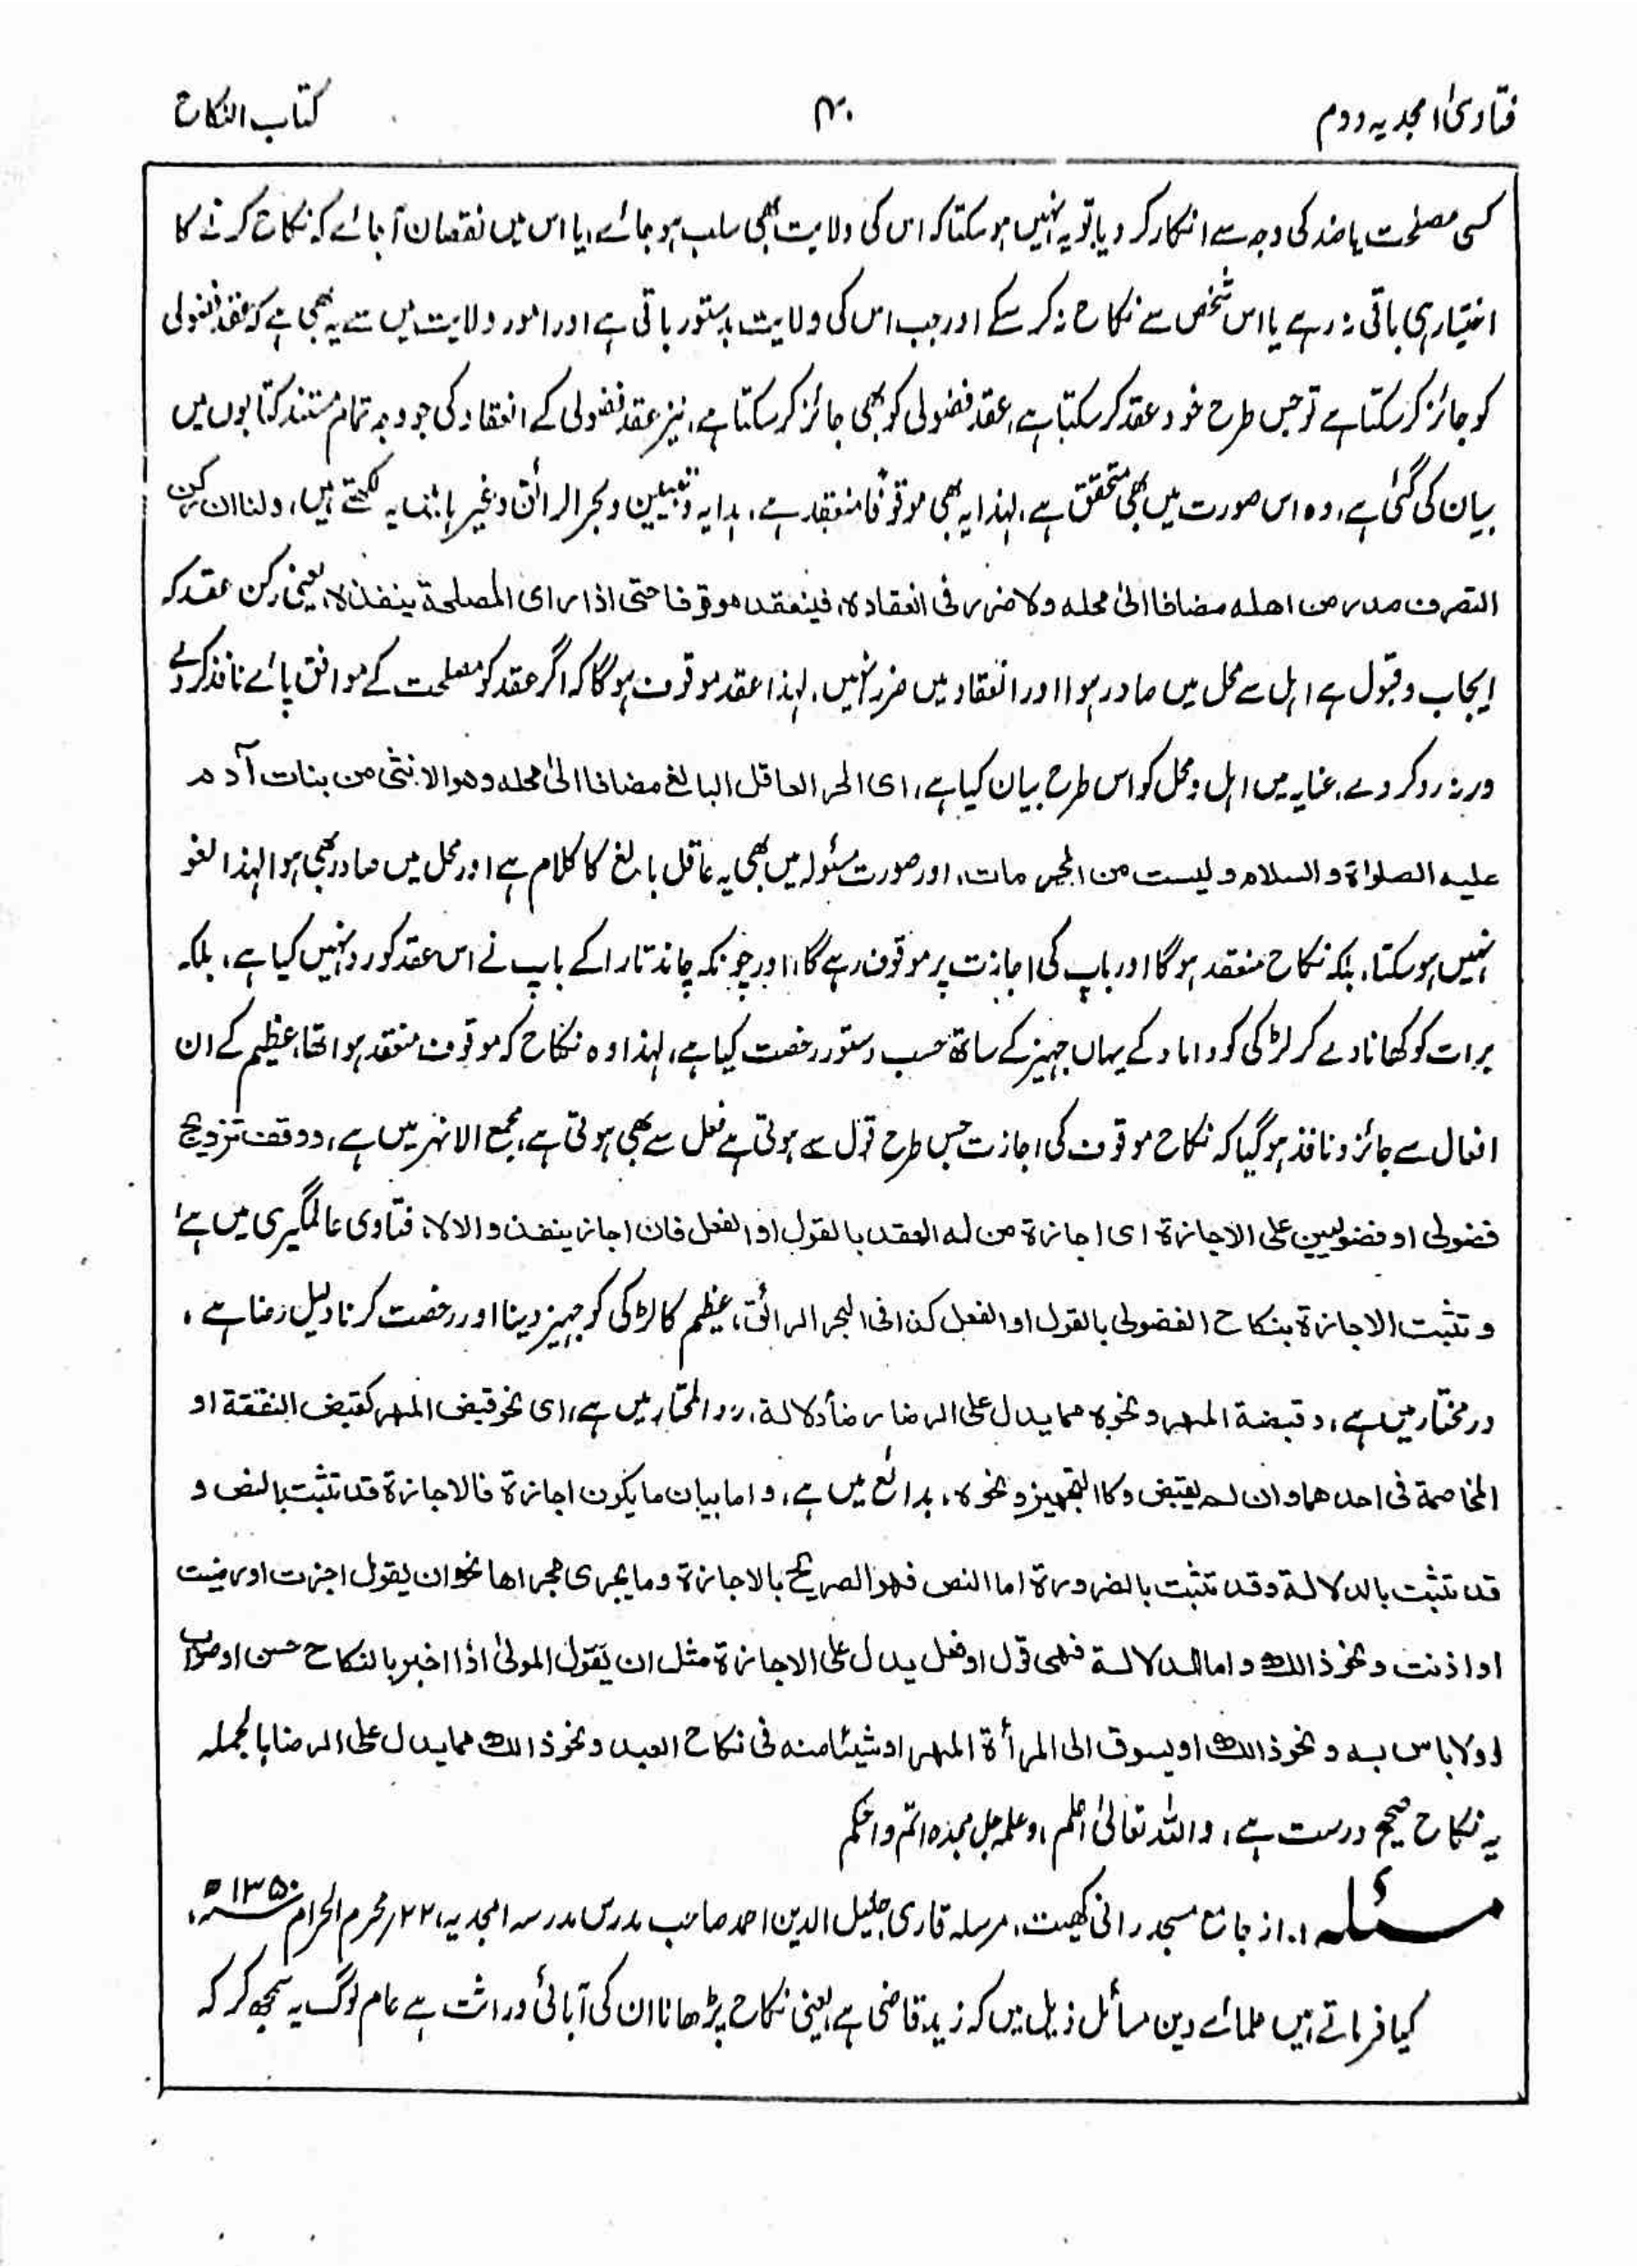 فتاویٰ امجدیہ دوم
۴۰
کتاب النکاح
کسی مصلحت یا ضد کی وجہ سے انکار کر دیا تو یہ نہیں ہو سکتا کہ اس کی ولایت بھی سلب ہو جائے، یا اس میں نقصان آجائے کہ نکاح کرنے کا
اختیار ہی باقی نہ رہے یا اس شخص سے نکاح نہ کر سکے اور جب اس کی ولایت بدستور باقی ہے اور امور ولایت میں سے یہ بھی ہے کہ عقد فضولی
کو جائز کر سکتا ہے تو جس طرح خود عقد کر سکتا ہے، عقد فضولی کو بھی جائز کر سکتا ہے، نیز عقد فضولی کے انعقاد کی جو وجہ تمام مستند کتابوں میں
بیان کی گئی ہے، وہ اس صورت میں بھی متحقق ہے، لہٰذا یہ بھی موقوفًا منعقد ہے، ہدایہ و تبیین و بحر الرائق وغیرہا میں یہ لکھتے ہیں، ولنا ان رکن
التصرف صدر من اھلہ مضافا الیٰ محلہ ولا ضرر فی انعقادہ، فینعقد موقوفا حتی اذا رای المصلحۃ ینفذہ، یعنی رکن عقد کہ
ایجاب و قبول ہے اہل سے محل میں صادر ہوا اور انعقاد میں ضرر نہیں، لہٰذا عقد موقوف ہوگا کہ اگر عقد کو مصلحت کے موافق پائے نافذ کر دے
ورنہ رد کر دے، عنایہ میں اہل و محل کو اس طرح بیان کیا ہے، ای الحر العاقل البالغ مضافا الیٰ محلہ وھو الانثی من بنات آدم
علیہ الصلوٰۃ والسلام ولیست من المحرمات، اور صورت مسئولہ میں بھی یہ عاقل بالغ کا کلام ہے اور محل میں صادر بھی ہوا لہٰذا لغو
نہیں ہو سکتا، بلکہ نکاح منعقد ہوگا اور باپ کی اجازت پر موقوف رہے گا، اور چونکہ چاند تارا کے باپ نے اس عقد کو رد نہیں کیا ہے، بلکہ
برات کو کھانا دے کر لڑکی کو داماد کے یہاں جہیز کے ساتھ حسب دستور رخصت کیا ہے، لہٰذا وہ نکاح کہ موقوف منعقد ہوا تھا، عظیم کے ان
افعال سے جائز و نافذ ہو گیا کہ نکاح موقوف کی اجازت جس طرح قول سے ہوتی ہے فعل سے بھی ہوتی ہے، مجمع الانہر میں ہے، ووقف تزویج
فضولی او فضولیین علی الاجازۃ ای اجازۃ من لہ العقد بالقول او الفعل فان اجاز ینفذ والا لا، فتاوی عالمگیری میں ہے،
وتثبت الاجازۃ بنکاح الفضولی بالقول او الفعل کذا فی البحر الرائق، عظیم کا لڑکی کو جہیز دینا اور رخصت کرنا دلیل رضا ہے،
درمختار میں ہے، وقبضۃ المھر ونحوہ مما یدل علی الرضا رضأ دلالۃ، رد المحتار میں ہے، ای نحو قبض المھر کقبض النفقۃ او
المخاصمۃ فی احدھما وان لم یقبض وکا التجھیز ونحوہ، بدائع میں ہے، واما بیان ما یکون اجازۃ فالاجازۃ قد تثبت بالنص و
قد تثبت بالدلالۃ وقد تثبت بالضرورۃ اما النص فھو الصریح بالاجازۃ وما یجری مجراھا نحو ان یقول اجزت او رضیت
او اذنت ونحو ذالک واما الدلالۃ فھی قول او فعل یدل علی الاجازۃ مثل ان یقول المولیٰ اذا اخبر بالنکاح حسن او صواب
او لا باس بہ ونحو ذالک او یسوق الی المرأۃ المھر او شیئا منہ فی نکاح العبد ونحو ذالک مما یدل علی الرضا بالجملہ
یہ نکاح صحیح درست ہے، واللہ تعالیٰ اعلم، وعلمہ جل مجدہ اتم واحکم
مسئلہ ۱۔ از جامع مسجد رانی کھیت، مرسلہ قاری جلیل الدین احمد صاحب مدرس مدرسہ امجدیہ، ۲۲؍ محرم الحرام ۱۳۵۰ھ،
کیا فرماتے ہیں علمائے دین مسائل ذیل میں کہ زید قاضی ہے یعنی نکاح پڑھانا ان کی آبائی وراثت ہے عام لوگ یہ سمجھ کر کہ